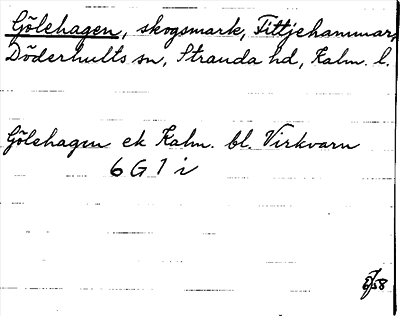 Gölehagen, skogsmark, Fittjehammar,
Döderhults sn, Stranda hd, Kalm. l.
Gölehagen ek Kalm. bl. Virkvarn
6 G 1 i